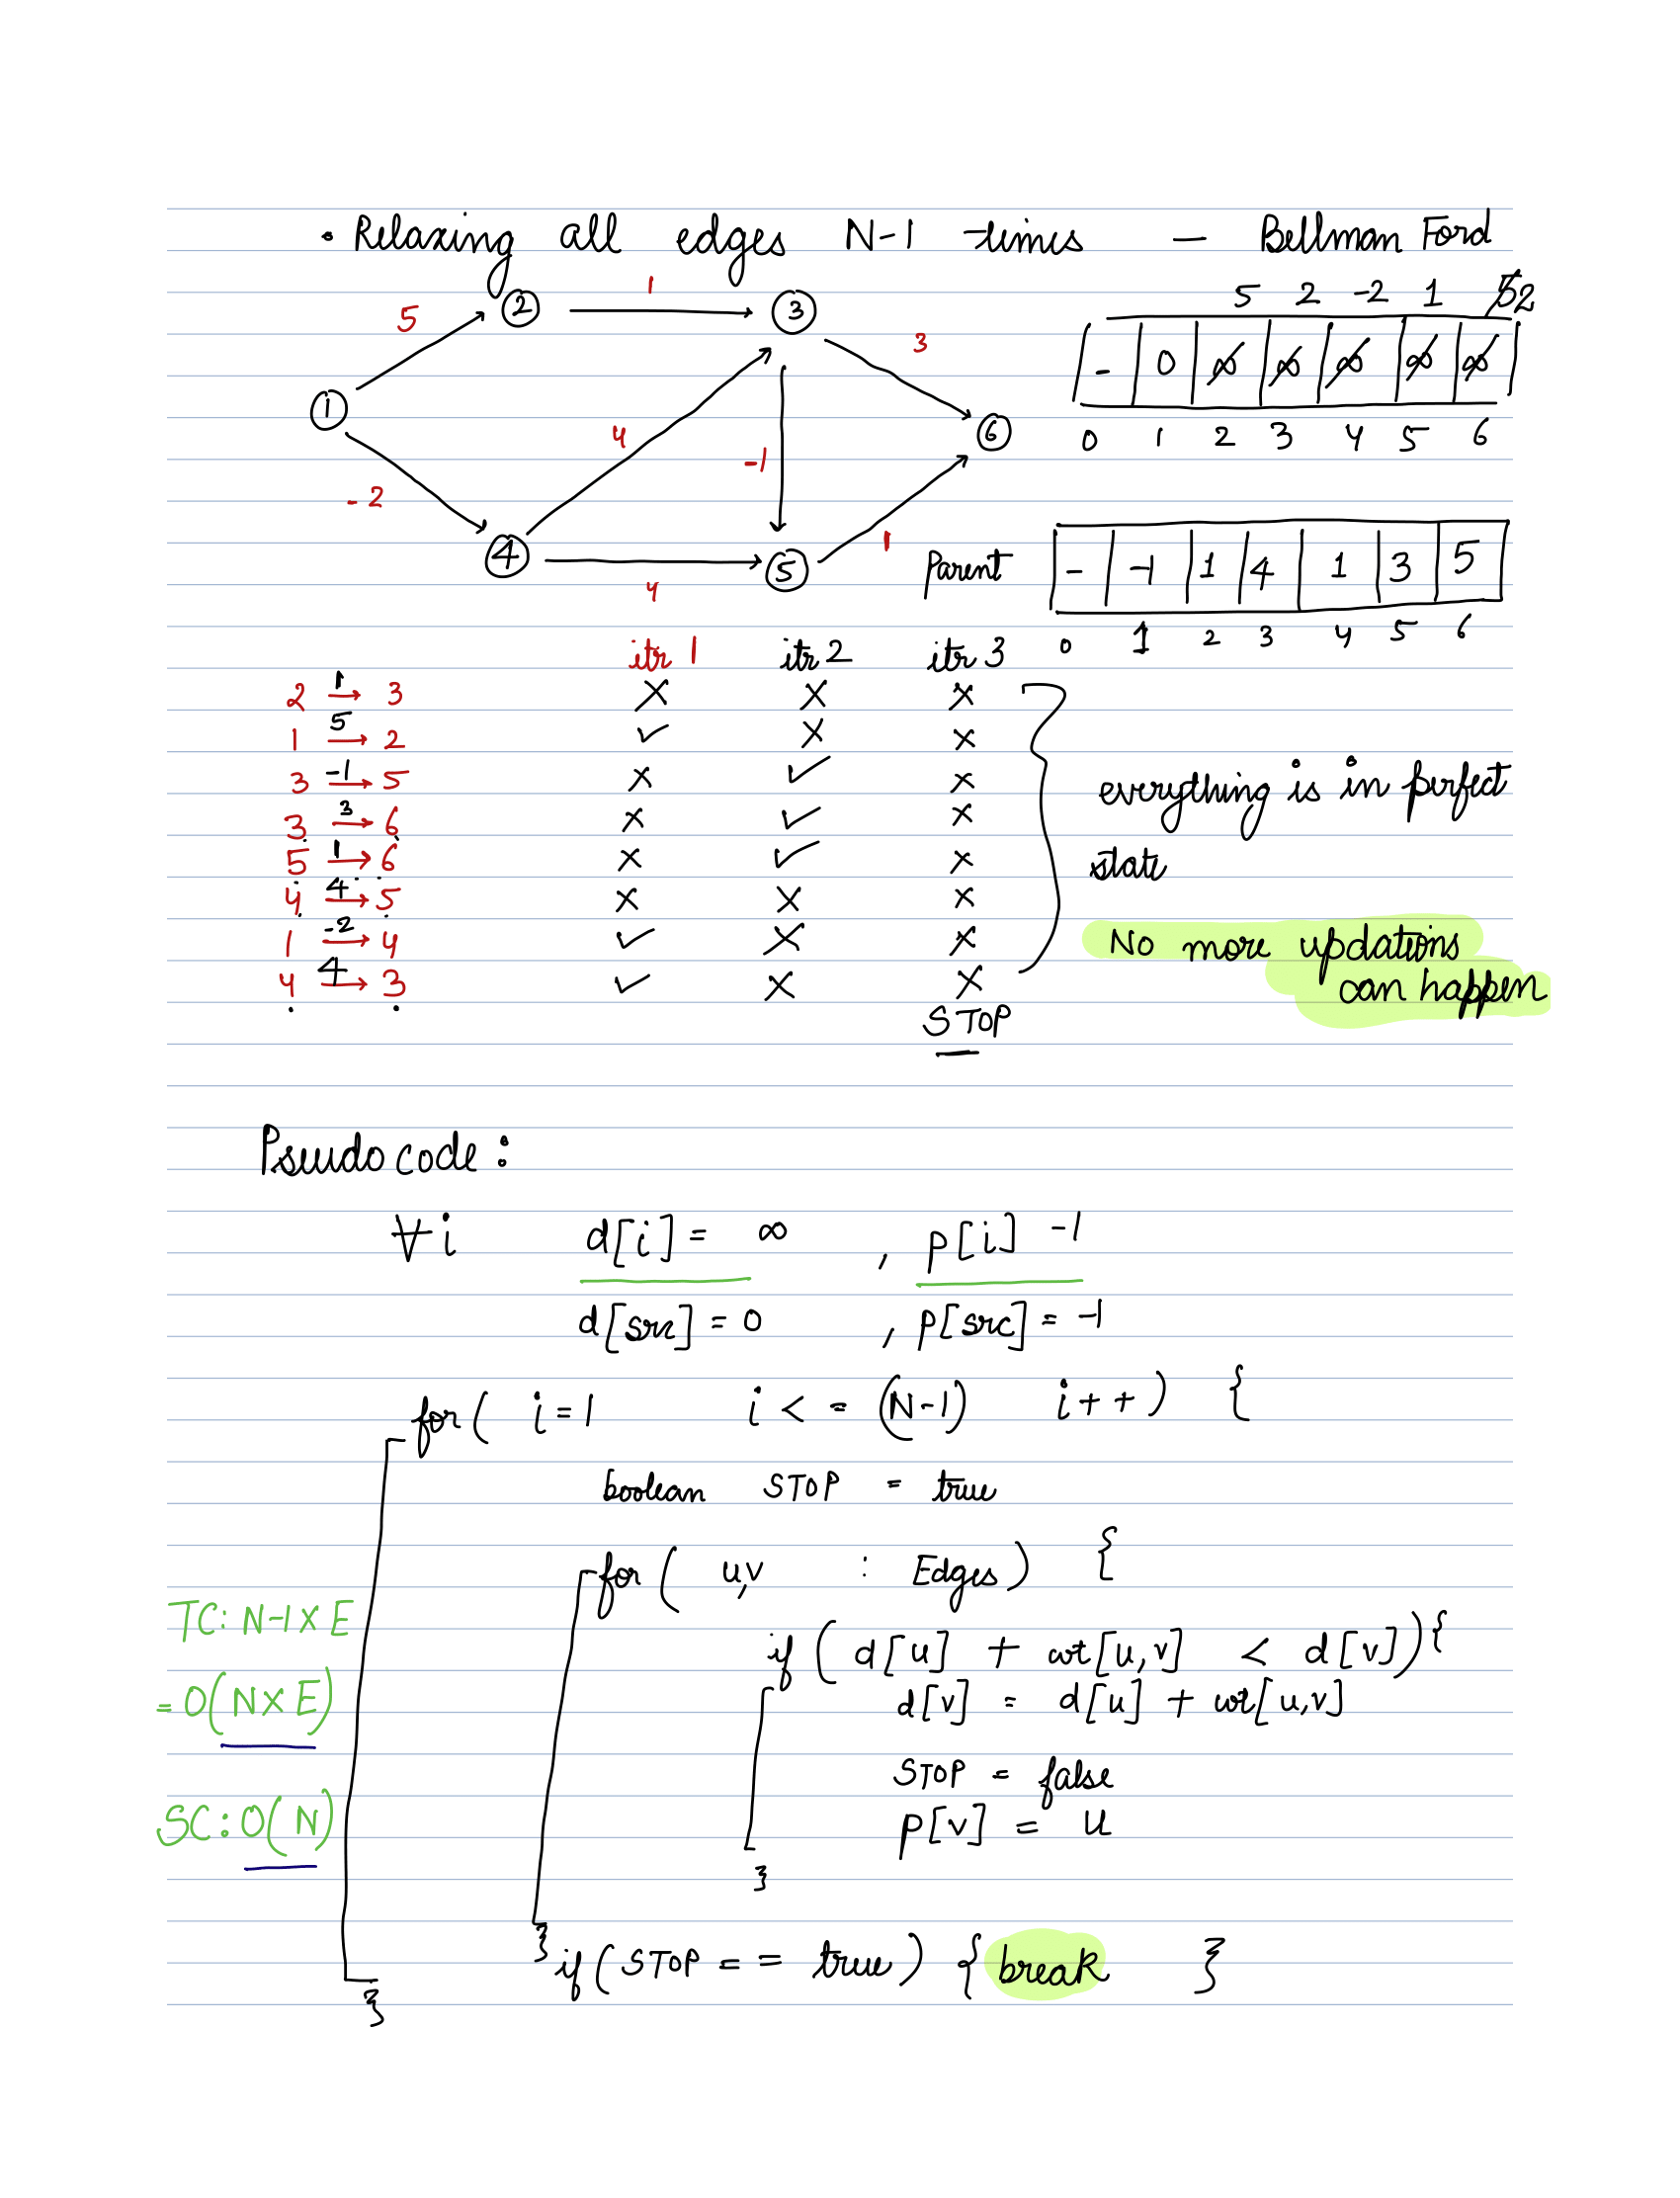 • Relaxing all edges N-1 times — Bellman Ford
5 2 -2 1 5 2
1 2 3 4 5 6
5 1 3 -2 4 -1 4 1
- 0 ∞ ∞ ∞ ∞ ∞
0 1 2 3 4 5 6
Parent - -1 1 4 1 3 5
0 1 2 3 4 5 6
itr 1 itr 2 itr 3
2 1→ 3 X X X
1 5→ 2 ✓ X X
3 -1→ 5 X ✓ X
3 3→ 6 X ✓ X
5 1→ 6 X ✓ X
4 4→ 5 X X X
1 -2→ 4 ✓ X X
4 4→ 3 ✓ X X
STOP
everything is in perfect
state
No more updations
can happen
Pseudo code :
∀i d[i] = ∞ , p[i] -1
d[src] = 0 , p[src] = -1
for( i=1 i <= (N-1) i++ ) {
boolean STOP = true
for ( u,v : Edges) {
if ( d[u] + wt[u,v] < d[v]) {
d[v] = d[u] + wt[u,v]
STOP = false
p[v] = u
}
}
if (STOP == true) { break }
}
TC: N-1 X E
= O(N X E)
SC: O(N)